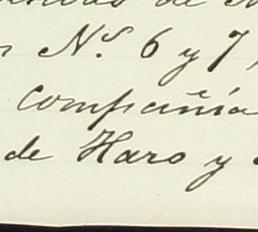 de
Nº. 6 y 7,
compañía
de Haro y